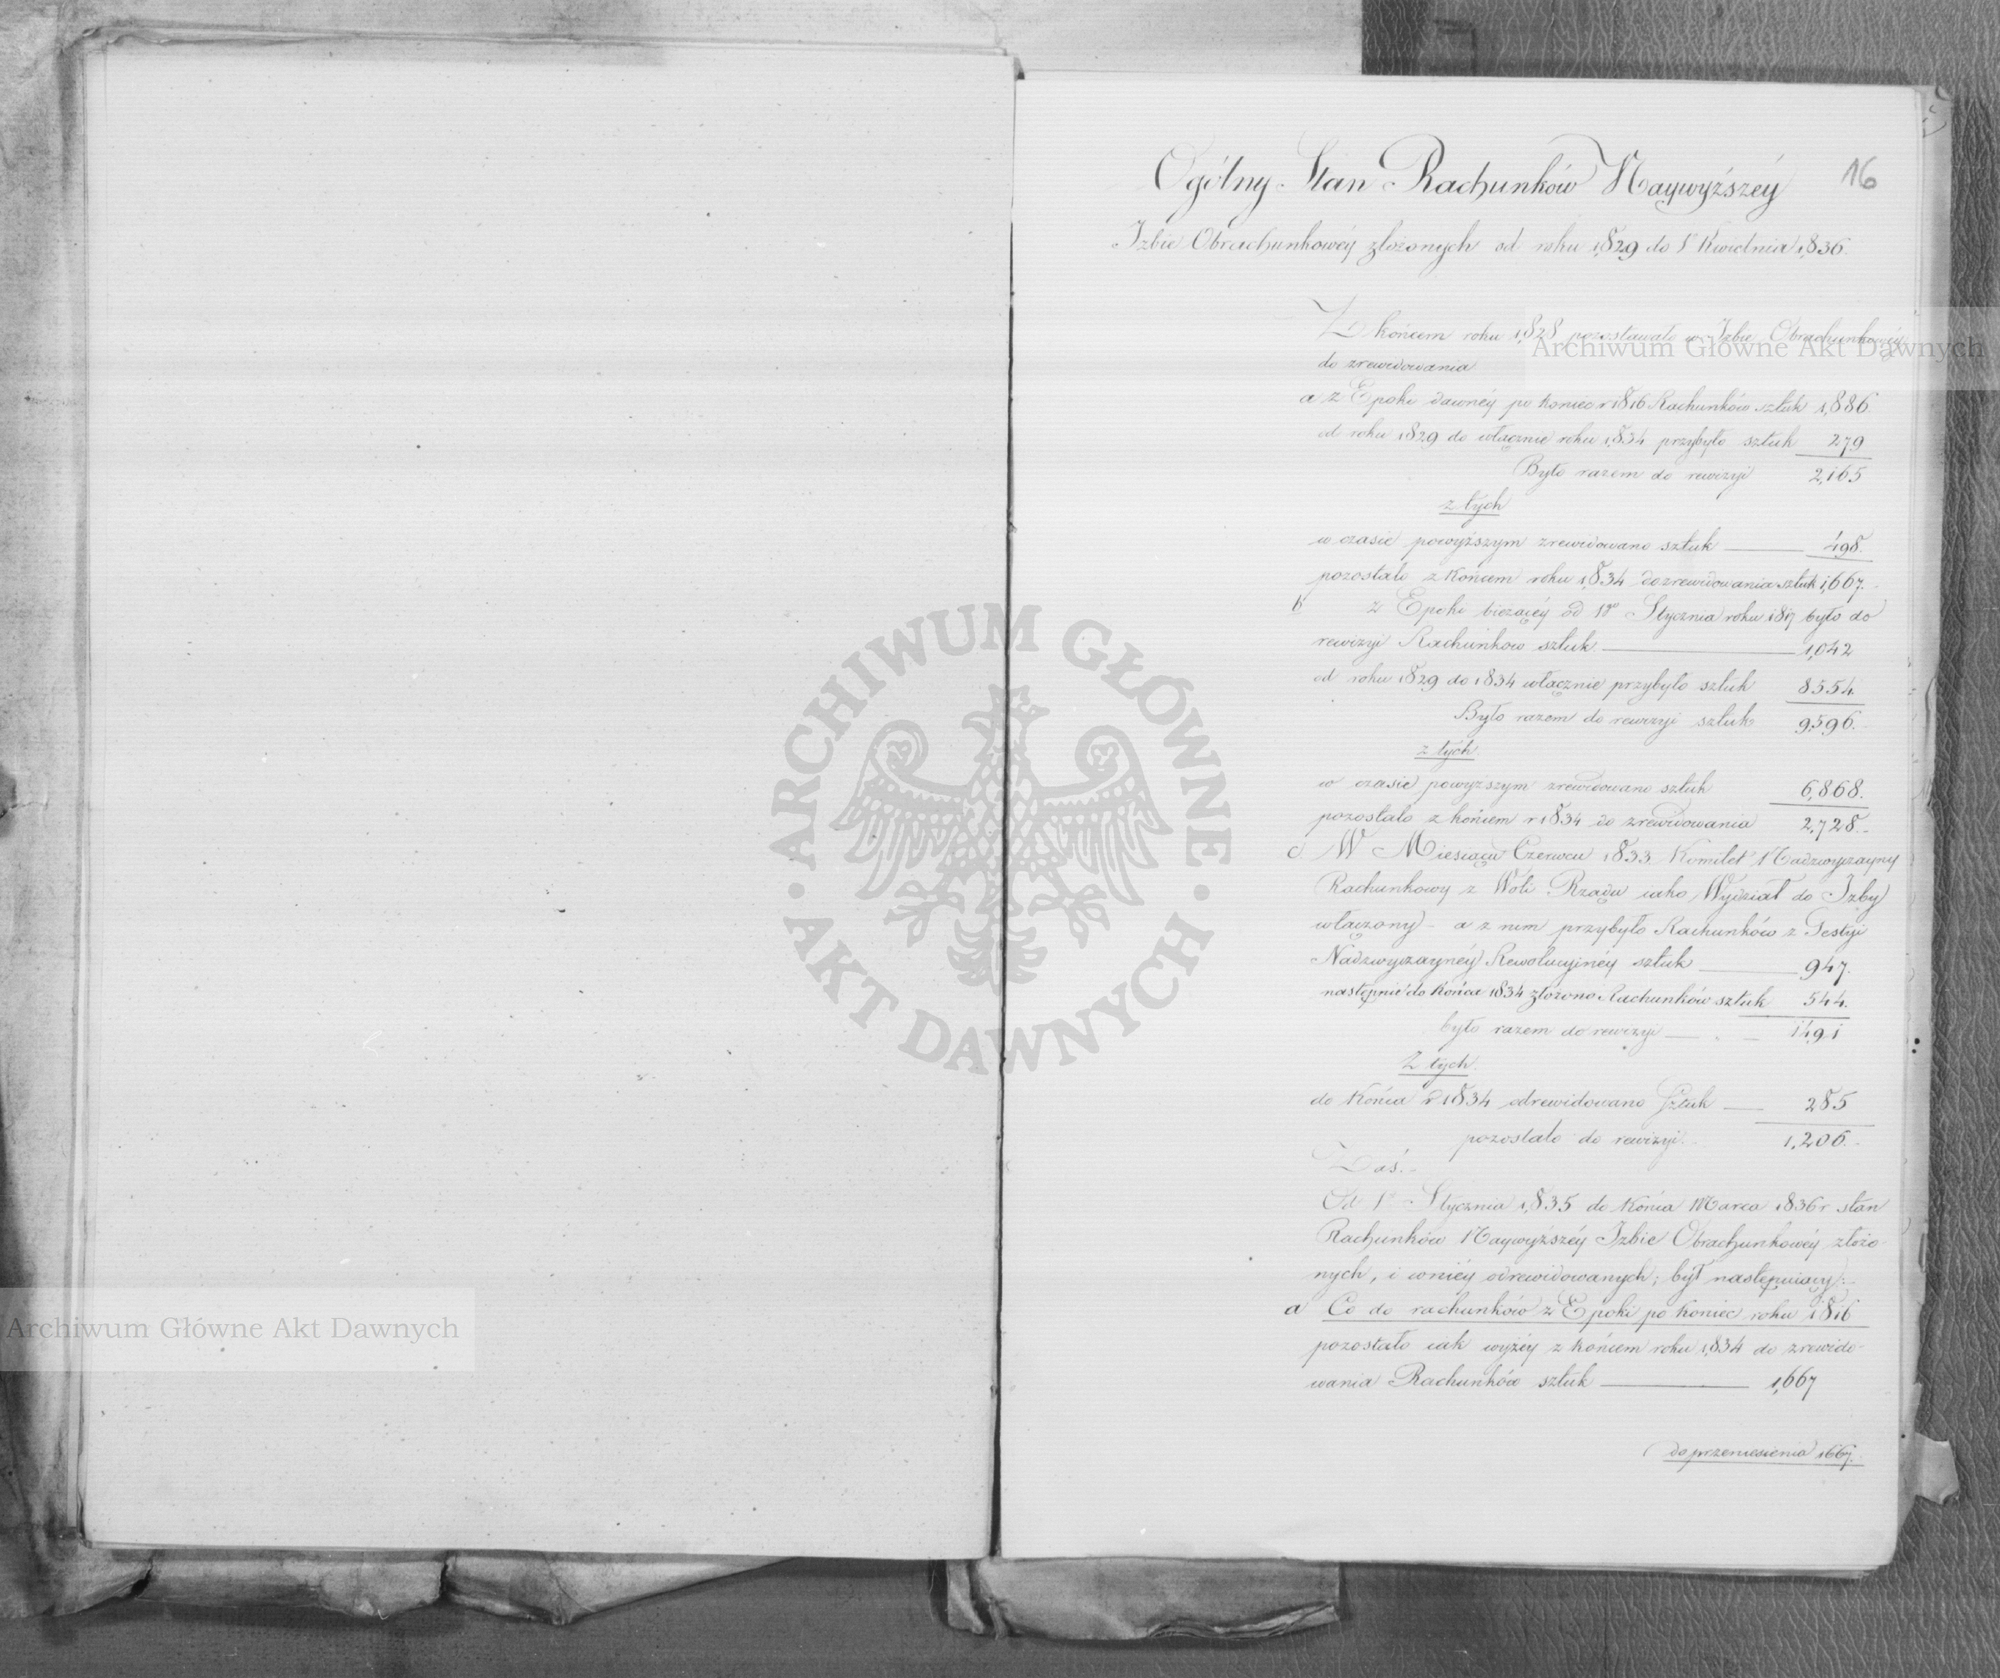 16
Ogólny Stan Rachunków Naywyższéy
Izbie Obrachunkowéy złożonych od roku 1,829 do 1º Kwietnia 1,836.
Z końcem roku 1,828 pozostawało w Izbie Obrachunkowéy
do zrewidowania
a z Epoki dawnéy po koniec r 1816 Rachunków sztuk 1,886.
od roku 1829 do włącznie roku 1,834 przybyło sztuk 279
Było razem do rewizyi 2,165
z tych
w czasie powyższym zrewidowano sztuk 498.
pozostało z końcem roku 1,834 do zrewidowania sztuk 1,667.
b z Epoki bieżącéy od 1go Stycznia roku 1817 było do
rewizyi Rachunków sztuk 1,042
od roku 1829 do 1834 włącznie przybyło sztuk 8554.
Było razem do rewizyi sztuk 9,596.
z tych.
w czasie powyższym zrewidowano sztuk 6,868.
pozostało z końcem r 1834 do zrewidowania 2,728.
c. W Miesiącu Czerwcu 1833. Komitet Nadzwyczayny
Rachunkowy z Woli Rządu iako Wydział do Izby
włączony – a z nim przybyło Rachunków z
Nadzwyczaynéy Rewolucyinéy sztuk 947.
następnie do końca 1834 złożono Rachunków sztuk 544.
było razem do rewizyi 1491
Z tych.
do końca r 1834 odrewidowano Sztuk 285
pozostało do rewizyi. 1,206.
Zaś.
Od 1º Stycznia 1,835 do końca Marca 1836 r stan
Rachunków Naywyższéy Izbie Obrachunkowéy złożo-
nych, i w niéy odrewidowanych; był następuiący:
a Co do rachunków z Epoki po koniec roku 1816
pozostało iak wyżéy z końcem roku 1,834 do zrewido-
wania Rachunków sztuk 1,667
do przeniesienia 1667.
Archiwum Główne Akt Dawnych
ARCHIWUM GŁÓWNE AKT DAWNYCH
Archiwum Główne Akt Dawnych